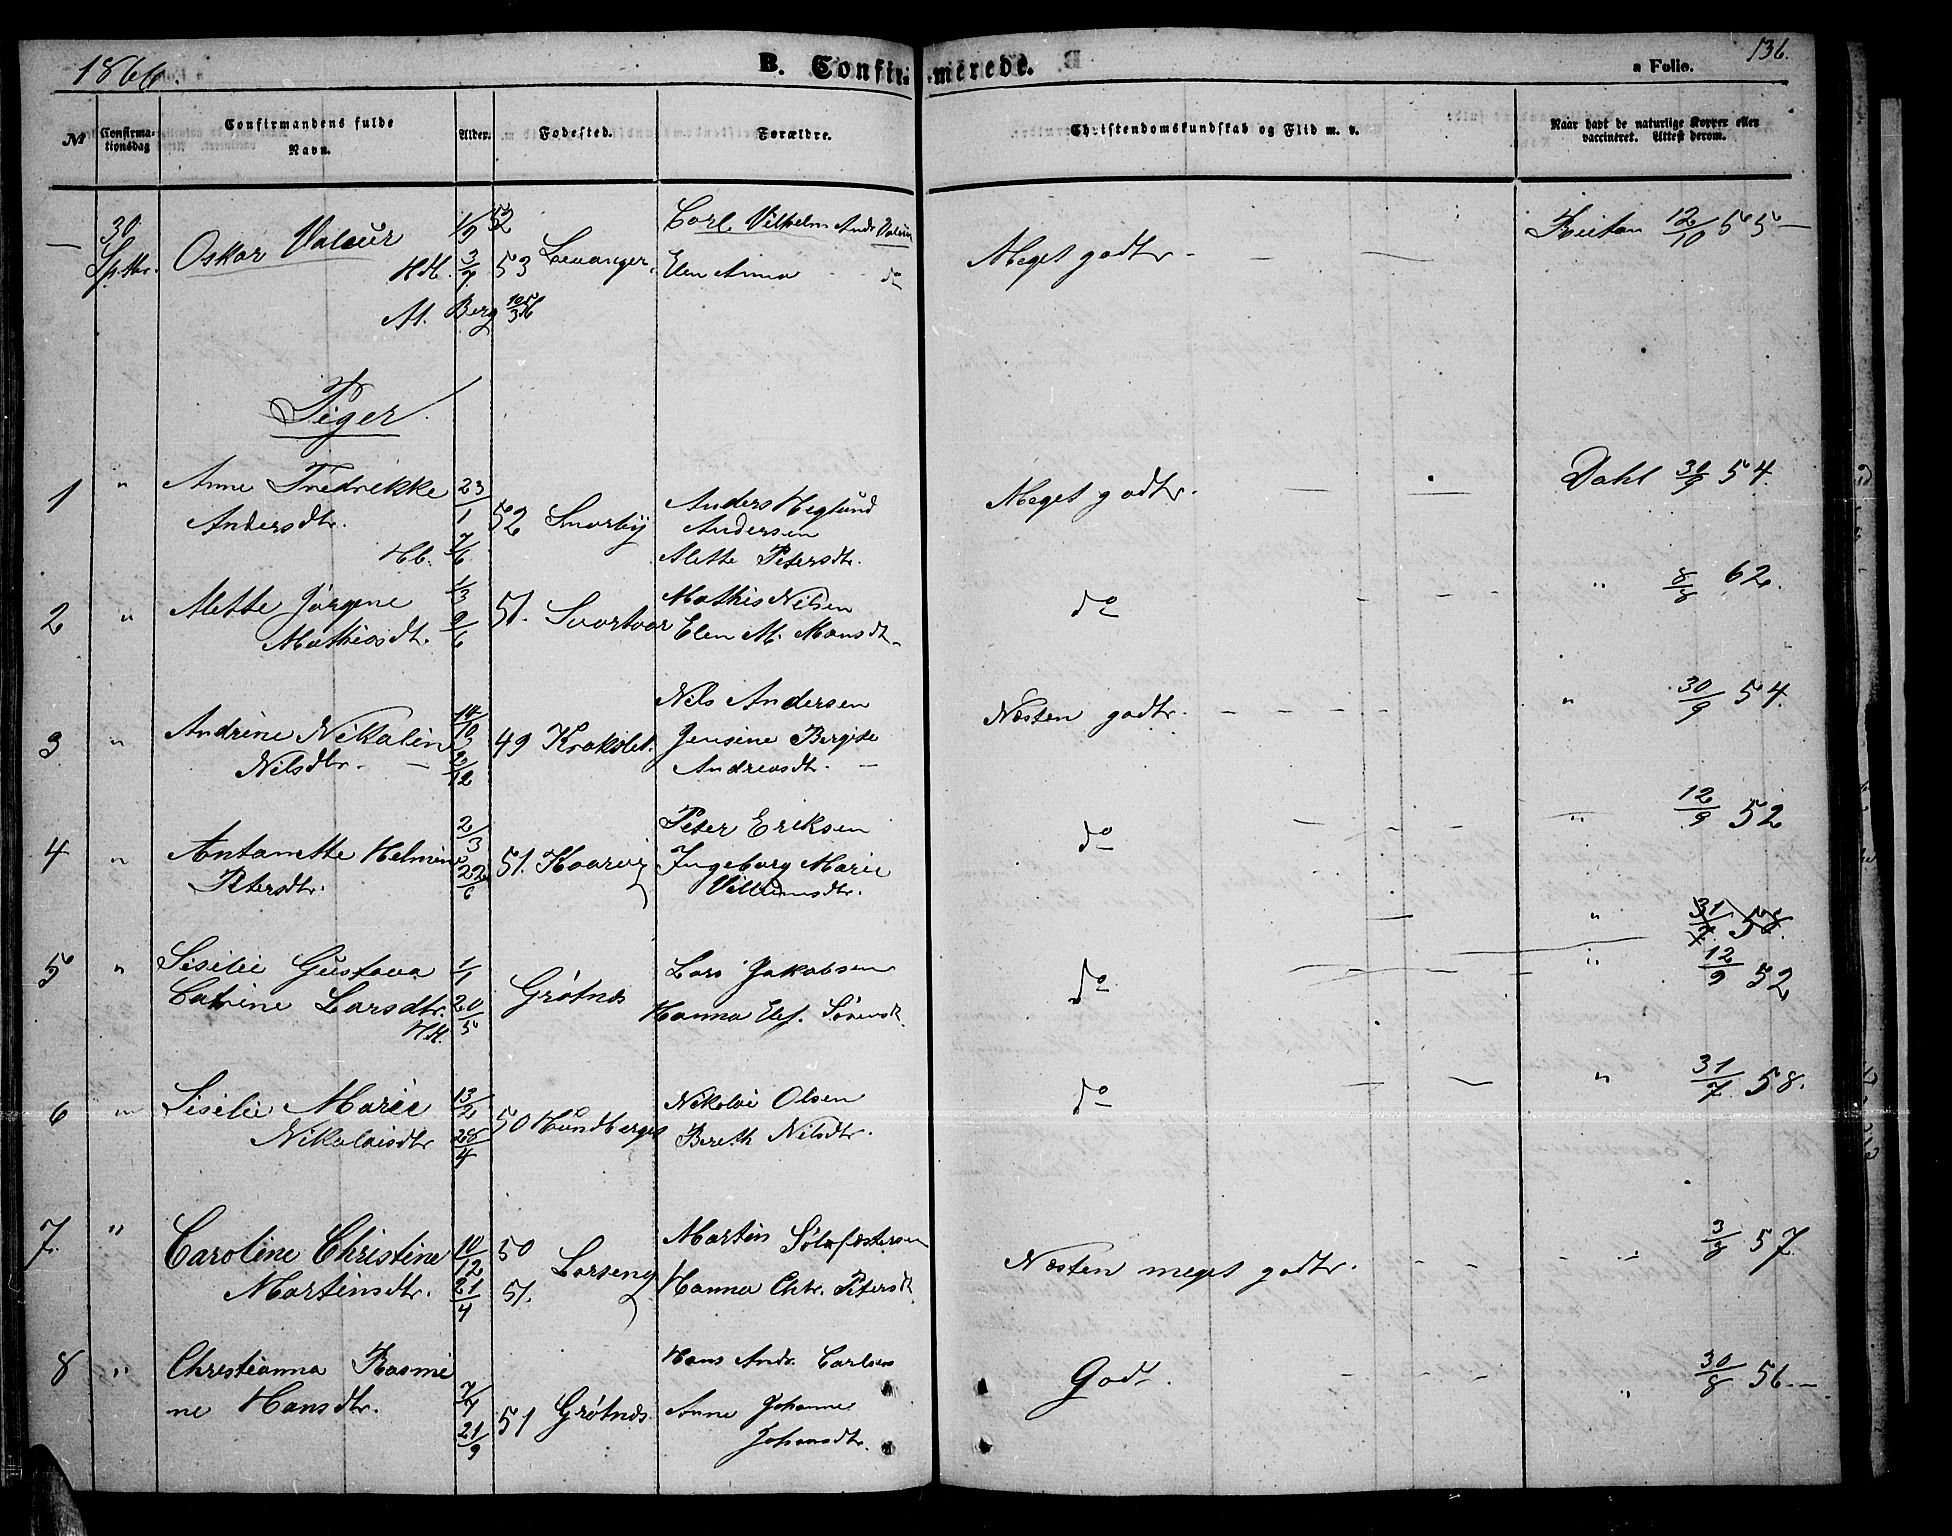 1866.
B. Confirmerede.
a Folio.
136.
№
Confirmationsdag
Confirmandens fulde Navn.
Alder.
Fødested.
Forældre.
Christendomskundskab og Flid m. v.
Naar havt de naturlige Kopper eller vaccineret. Attest derom.
30 1/9 52 Carl Vilhelm Andr. Valeur
— Sptbr. Oskar Valeur Meget godt. — — — 12/10 55 —
HH. 3/7 53 Levanger. Elen Anna do
At. Berg 10/3 56
Piger
1 " Anne Fredrikke 23/1 Meget godt. — — Dahl 30/9 54.
Andersdtr. 52 Snarby Anders Heglund
Andersen
Hb. 7/6 Mette Petersdtr.
2 " Mette Jørgine 1/3 51. Svartvar Mathis Nilsen do " 8/8 62.
Mathisdtr. 9/6 Elen M. Mansdt.
3 " Andrine Nikolin 14/10 49 Krokslet. Nils Andersen Næsten godt. — — — — " 30/9 54.
Nilsdtr. — 2/12 Jensine Bergite
Andreasdtr. —
4 " Antonette Helmine 2/3 51. Kaarvig Peter Eriksen do " 12/9 52
Petersdtr. 22/6 Ingeborg Marie
Villumsdtr.
" 31/7 58.
5 " Sisilie Gustava 1/1 Grøtnæs Lars Jakobsen do " 12/9 52
Catrine Larsdtr. 20/5 Hanna Elis. Sørensdt.
HH.
6 " Sisilie Marie 13/2 50 Hundberget Nikolai Olsen do " 31/7 58.
Nikolaisdtr 28/4 Bereth Nilsdtr.
7. " Caroline Christine 10/12 50 Larseng Martin Sølfæstersen Næsten meget godt. — — " 3/8 57
Martinsdtr. 21/4 51. Hanna Chtr. Petersdt
8 " Christianna Rasmi 7/7 51 Grøtnæs Hans Andr. Carlsen Godt. " 30/8 56 —
ne Hansdtr. 21/9 Anne Johanne
Johansdtr.